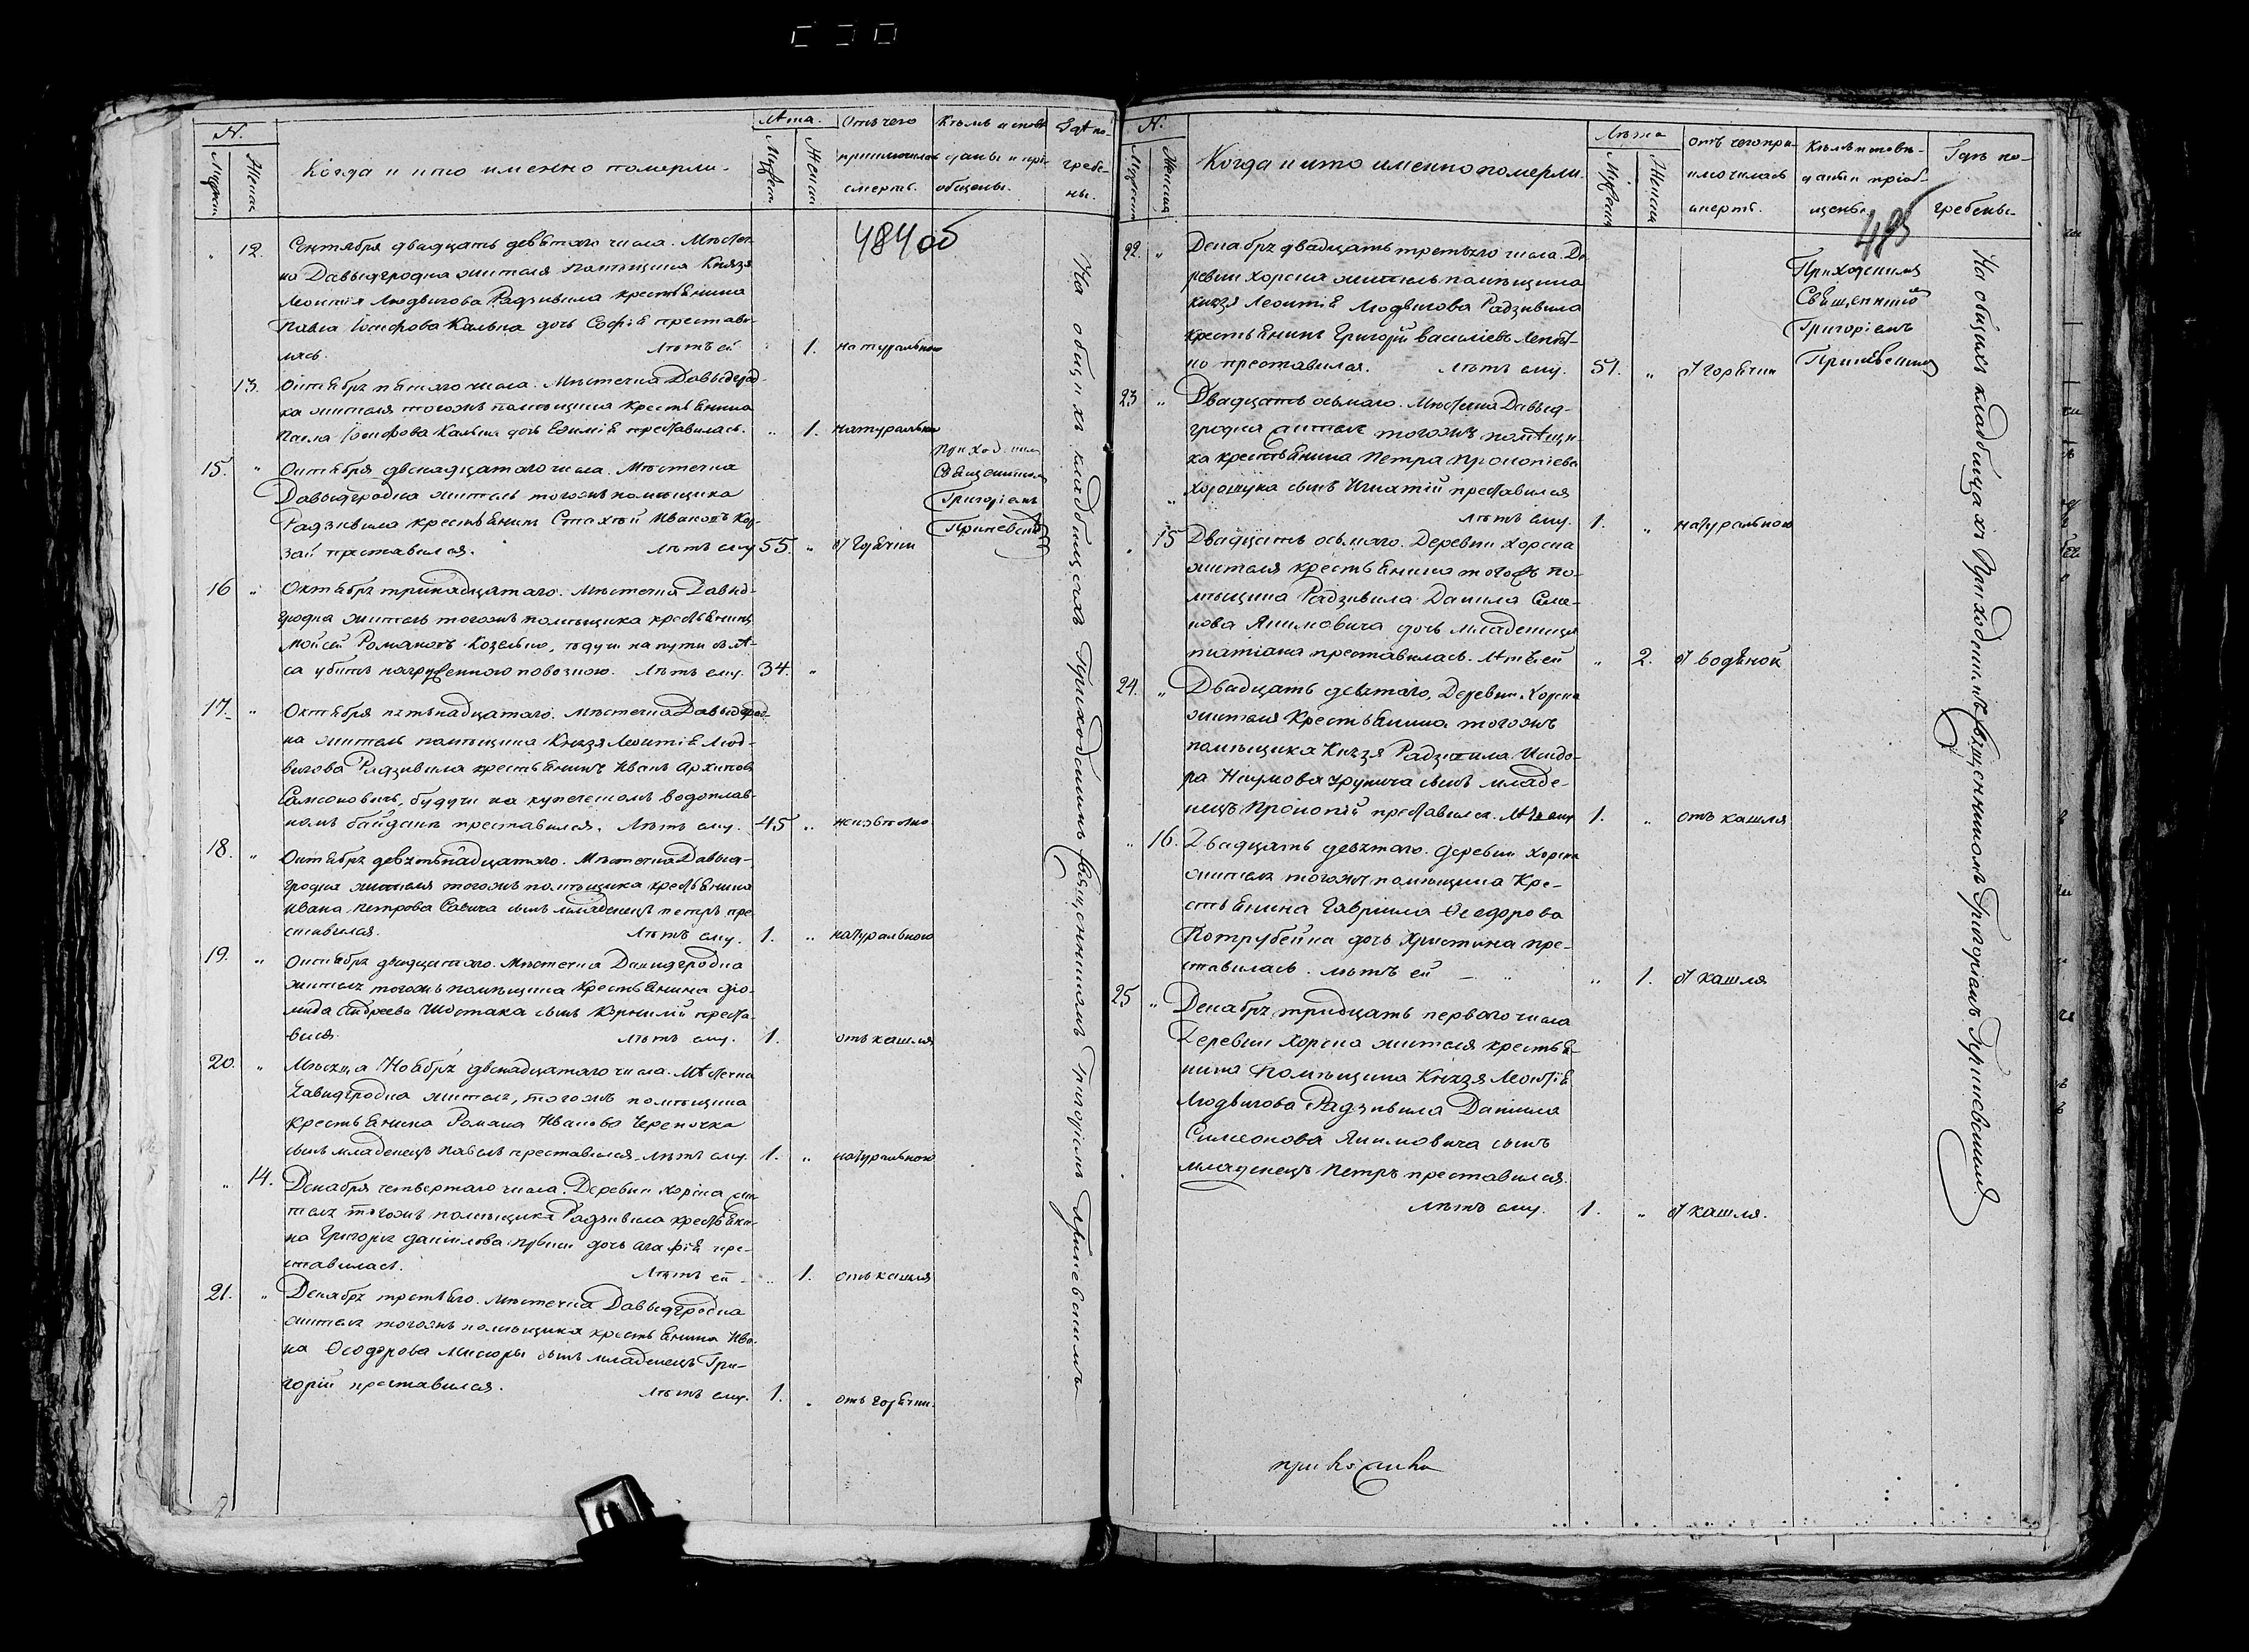 N.
Мужеск
Женск
Когда и кто именно померли.
Лѣта.
Мужеск
Женск
Отъ чего
приключилась
смерть.
Кѣмъ исповѣ
даны и прі-
общены.
Гдѣ по-
гребе-
ны.
484 об
12. Сентября двадцать девятаго числа. Мѣстеч-
ка Давыдгродка жителя помѣщика Князя
Леонтія Людвигова Радзивила крестьянина
Павла Іосифова Калька дочь Софія престави-
лась. Лѣтъ ей 1. натурально
13. Октября пятаго числа. Мѣстечка Давыдгрод-
ка жителя тогожъ помѣщика крестьянина
Павла Іосифова Калька дочь Евимія преставилась. " 1. натурально
15. " Октября двенадцатаго числа. Мѣстечка
Давыдгродка житель тогожъ помѣщика
Радзивила крестьянинъ Стахій Ивановъ Кор-
зай преставился. Лѣтъ ему 55. " от горячки
Приходским
Священником
Григоріемъ
Гриневским
16 " Октября тринадцатаго. Мѣстечка Давыд-
гродка житель тогожъ помѣщика крестьянинъ
Мойсей Романовъ Козелко, едучи на пути въ лѣ-
са убитъ нагруженною повозкою. Лѣтъ ему. 34. "
17. " Октября пятьнадцатаго. Мѣстечка Давыдгрод-
ка житель помѣщика Князя Леонтія Люд-
вигова Радзивила крестьянинъ Иванъ Архиповъ
Самсоновичъ, будучи на купеческомъ водоплав-
номъ байдакѣ преставился. Лѣтъ ему. 45 " неизвѣстно
18. " Октября девятьнадцатаго. Мѣстечка Давыд-
гродка жителя тогожъ помѣщика крестьянина
Ивана Петрова Савича сынъ младенецъ Петръ пре
ставился. Лѣтъ ему. 1. " натурально
19. " Октября двадцатаго. Мѣстечка Давыдгродка
жителя тогожъ помѣщика крестьянина Дio-
мида Андреева Шостака сынъ Корнилій преста-
вися. Лѣтъ ему. 1. отъ кашля
20. " Мѣсяца Ноября двенадцатаго числа. Мѣстечка
Давыдгродка жителя, тогожъ помѣщика
крестьянина Романа Иванова Черепочка
сынъ младенецъ Павелъ преставился. Лѣтъ ему 1. " натурально
" 14. Декабря четвертаго числа. Деревни Хорска жи
теля тогожъ помѣщика Радзивила крестьяни-
на Григорія Даніилова дочь Агафія пре-
ставилась. Лѣтъ ей - " 1. отъ кашля
21. " Декабря третьяго. Мѣстечка Давыдгродка
жителя тогожъ помѣщика крестьянина Ива-
на Ѳеодорова Мисюры сынъ младенецъ Гри-
горій преставился. Лѣтъ ему. 1. " отъ горячки.
На общихъ кладбищахъ Приходскимъ Священникомъ Григоріемъ Гриневскимъ
N.
Мужеск
Женска
Когда и кто именно померли.
Лѣта
Мужеск
Женска
отъ чего при-
ключилась
смерть.
Кѣмъ исповѣ-
даны и пріоб-
щены.
Гдѣ по-
гребены.
485
22. " Декабря двадцать третьяго числа. Де
ревни Хорска житель помѣщика
Князя Леонтія Людвигова Радзивила
крестьянинъ Григорій Василіевъ
преставился. Лѣтъ ему. 51. " от горячки
Приходскимъ
Священнико
Григоріемъ
Гриневским
23 " Двадцать осьмаго. Мѣстечка Давыд-
гродка жителя тогожъ помѣщи-
ка крестьянина Петра Прокопіева
Хорошука сынъ Игнатій преставился
Лѣтъ ему. 1. " натурально
" 15 Двадцать осьмаго. Деревни Хорска
жителя крестьянина тогожъ по-
мѣщика Радзивила Данила Семе-
нова Якимовича дочь младеница
татіана преставилась. Лѣтъ ей " 2. от водяной
24. " Двадцать девятаго. Деревни Хорска
жителя Крестьянина тогожъ
помѣщика Князя Радзивила. Исидо-
ра Наумова сынъ младе-
нецъ Прокопій преставился. Лѣтъ ему 1. " отъ кашля
" 16. Двадцать девятаго. Деревни Хорска
жителя тогожъ помѣщика Кре-
стьянина Гавріила Ѳеодорова
Котрубейка дочь Христина пре-
ставилась. Лѣтъ ей - " " 1. от кашля
25 " Декабря тридцать перваго числа
Деревни Хорска жителя крестья-
нина Помѣщика Князя Леонтія
Людвигова Радзивила Даніила
Симеонова Якимовича сынъ
младенецъ Петръ преставился.
Лѣтъ ему. 1. " от кашля.
На общихъ кладбищахъ Приходскимъ Священникомъ Григоріемъ Гриневскимъ